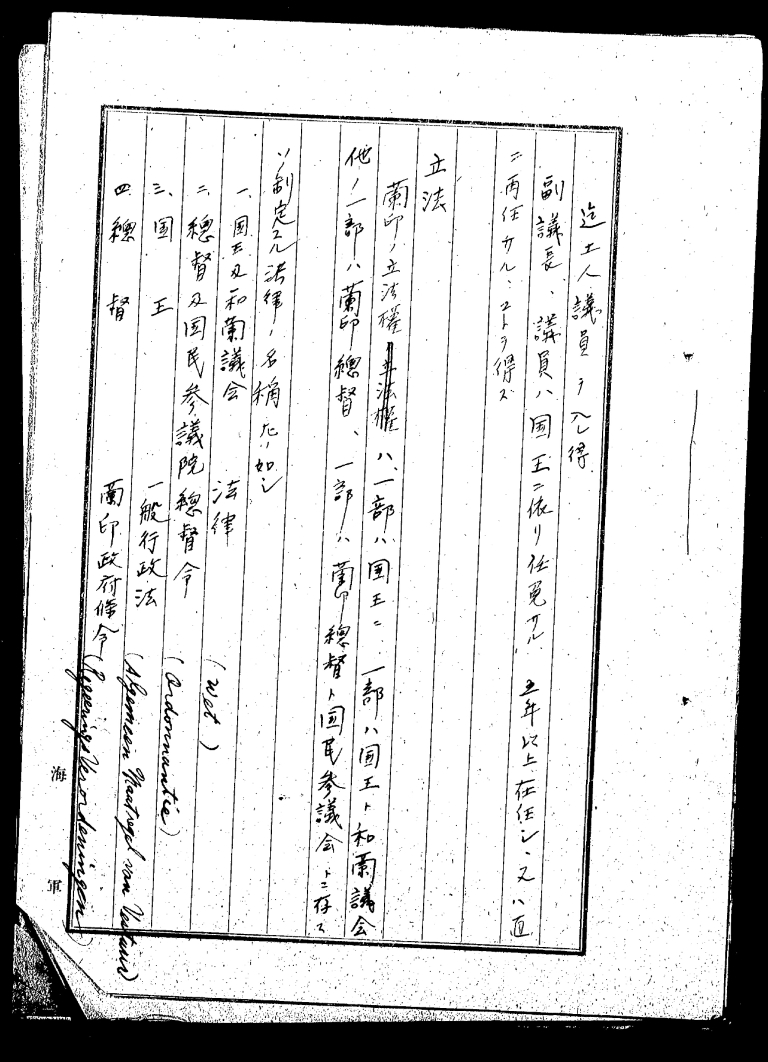 迄土人議員ヲ入レ得
副議長、議員ハ国王ニ依リ任免サル 五年以上在任シ、又ハ直
ニ再任サル、コトヲ得ズ
立法
蘭印ノ立法権立法権ハ、一部ハ国王ニ、一部ハ国王ト和蘭議会
他ノ一部ハ蘭印総督、一部ハ蘭印総督ト国民参議会トニ存ス
ソノ制定スル法律ノ名称左ノ如シ
一、国王及和蘭議会 法律 (Wet)
二、総督及国民参議院 総督令 (Ordonnantie)
三、国王 一般行政法 (Algemeen Maatregel van Bestuur)
四、総督 蘭印政府條令 (Regeerings Verordeningen)
海軍